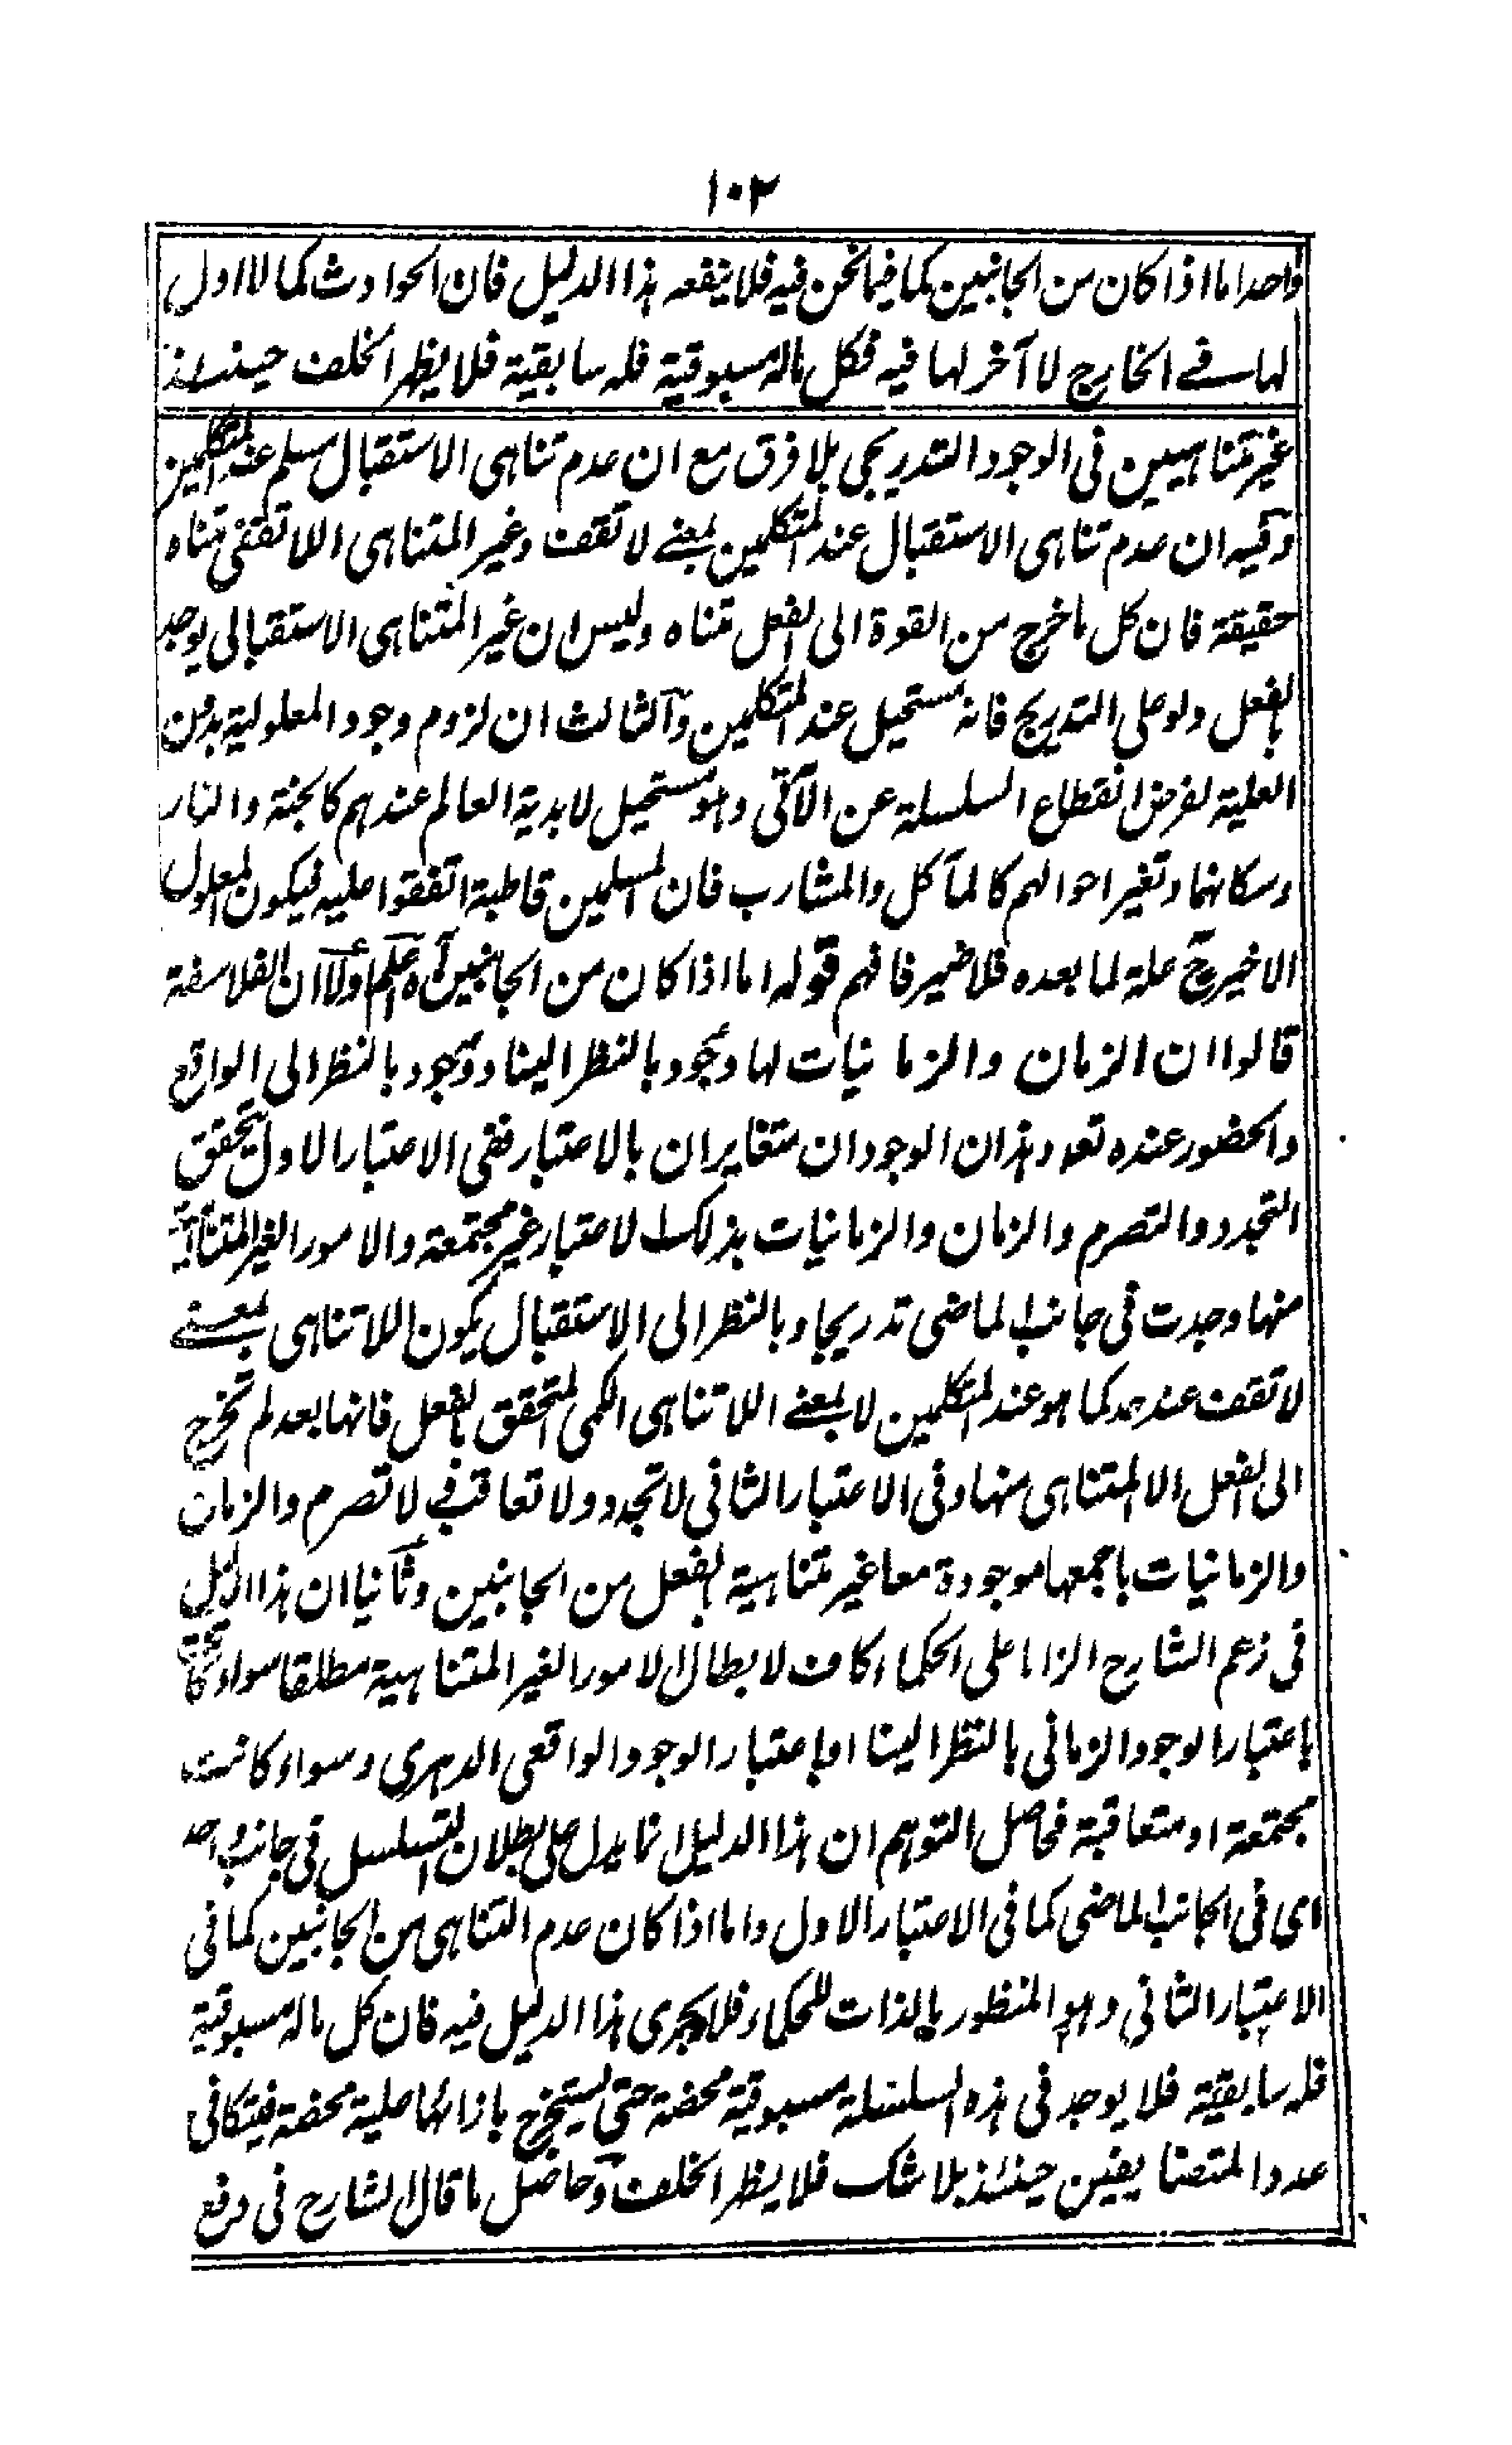 ١٠٢
واحدا اما اذا كان من الجانبين كما فيما نحن فيه فلا ينفعه هذا الدليل فان الحوادث كما لا اول
لها في الخارج لا آخر لها فيه فكل ماله مسبوقية فله سابقية فلا يظهر الخلف حينئذ
غير متناهيين في الوجود التدريجي بلا فرق مع ان عدم تناهي الاستقبال مسلم عند المتكلمين
وفيه ان عدم تناهي الاستقبال عند المتكلمين بمعنى لا تقف وغير المتناهي اللاتقفي متناه
حقيقة فان كل ما خرج من القوة الى الفعل متناه وليس ان غير المتناهي الاستقبالي يوجد
بالفعل ولو على التدريج فانه مستحيل عند المتكلمين والثالث ان لزوم وجود المعلولية بدون
العلية لفرض انقطاع السلسلة عن الآتي وهو مستحيل لابدية العالم عندهم كالجنة والنار
وسكانهما وتغير احوالهم كالمآكل والمشارب فان المسلمين قاطبة اتفقوا عليه فيكون المعلول
الاخير ح علة لما بعده فلا ضير فافهم قوله اما اذا كان من الجانبين آه اعلم اولا ان الفلاسفة
قالوا ان الزمان والزمانيات لها وجود بالنظر الينا ووجود بالنظر الى الواقع
والحضور عنده تعه وهذان الوجودان متغايران بالاعتبار ففي الاعتبار الاول تحقق
التجدد والتصرم والزمان والزمانيات بذلك الاعتبار غير مجتمعة والامور الغير المتناهية
منها وجدت في جانب الماضي تدريجا وبالنظر الى الاستقبال يكون اللاتناهي بمعنى
لا تقف عند حد كما هو عند المتكلمين لا بمعنى اللاتناهي الكمي المتحقق بالفعل فانها بعد لم تخرج
الى الفعل الا المتناهي منها وفي الاعتبار الثاني لا تجدد ولا تعاقب لا تصرم والزمان
والزمانيات باجمعها موجودة معا غير متناهية بالفعل من الجانبين وثانيا ان هذا الدليل
في زعم الشارح الزاما على الحكماء كاف لابطال الامور الغير المتناهية مطلقا سواء كانت
باعتبار الوجود الزماني بالنظر الينا او باعتبار الوجود الواقعي الدهري وسواء كانت
مجتمعة او متعاقبة فحاصل التوهم ان هذا الدليل انما يدل على بطلان التسلسل في جانب واحد
اي في الجانب الماضي كما في الاعتبار الاول واما اذا كان عدم التناهي من الجانبين كما في
الاعتبار الثاني وهو المنظور بالذات للحكماء فلا يجري هذا الدليل فيه فان كل ماله مسبوقية
فله سابقية فلا يوجد في هذه السلسلة مسبوقية محضة حتى يستخرج بازائها علية محضة فيتكافى
عدد المتضايفين حينئذ بلا شك فلا يظهر الخلف وحاصل ما قال الشارح في دفع